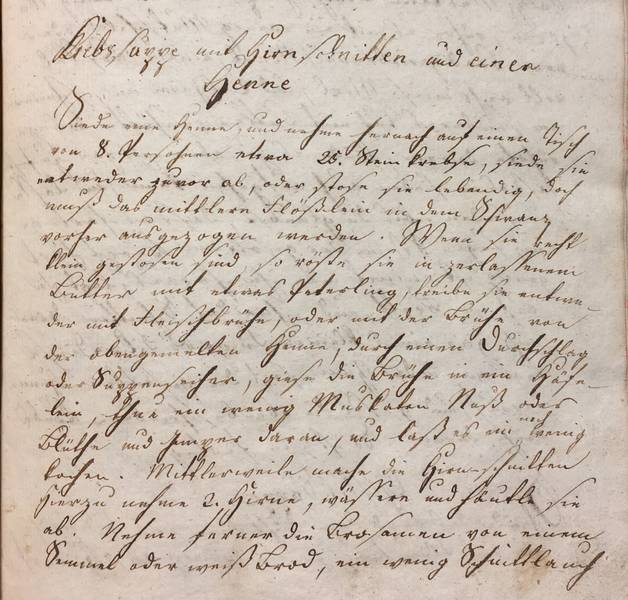 Krebssuppe mit Hirnschnitten und einer
Henne
Siede eine Henne, und nehme hernach auf einen Tisch
von 8. Persohnen etwa 25. Steinkrebse, siede sie
entweder zuvor ab, oder stose sie lebendig, doch
muß das mittlere Flößlein in dem Schwanz
vorher ausgezogen werden. Wenn sie recht
klein gestosen sind so röste sie in zerlassenem
Butter mit etwas Peterling, treibe sie entwe-
der mit Fleischbrühe, oder mit der Brühe von
der obengemelten Henne, durch einen Durchschlag
oder Suppenseiher, giese die Brühe in ein Häfe-
lein, thue ein wenig Muskaten Nuß oder
Blüthe und Imper daran, und laß es noch ein wenig
kochen. Mittlerweile mache die Hirn-schnitten
hierzu nehme 2. Hirne, wässere und häutle sie
ab. Nehme ferner die Brosamen von einem
Semmel oder weiß Brod, ein wenig Schnittlauch